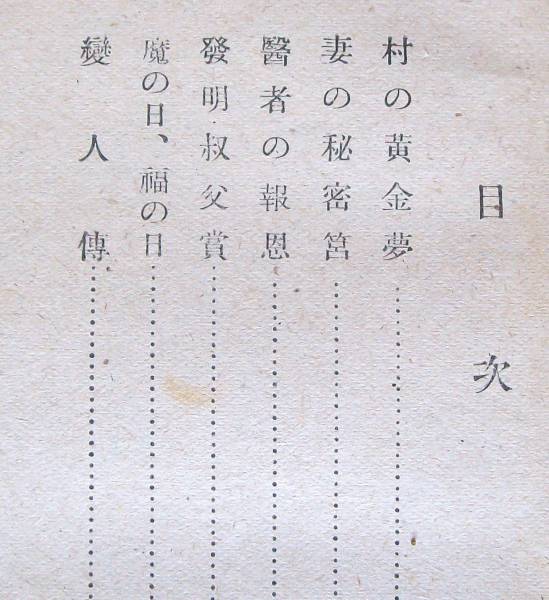 目次
村の黃金夢
妻の秘密筥
醫者の報恩
發明叔父賞
魔の日、福の日
變人傳